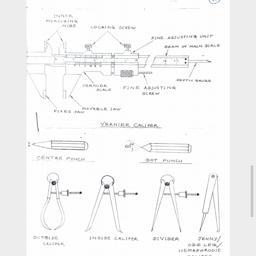 INNER
MEASURING
NIBS
LOCKING SCREW
FINE ADJUSTING UNIT
BEAM OR MAIN SCALE
DEPTH GAUGE
VERNIER
SCALE
FINE ADJUSTING
SCREW
FIXED JAW
MOVABLE JAW
VERNIER CALIPER
CENTRE PUNCH
DOT PUNCH
OUTSIDE
CALIPER
INSIDE CALIPER
DIVIDER
JENNY/
ODD LEG/
HEMAPHRODITE
CALIPER